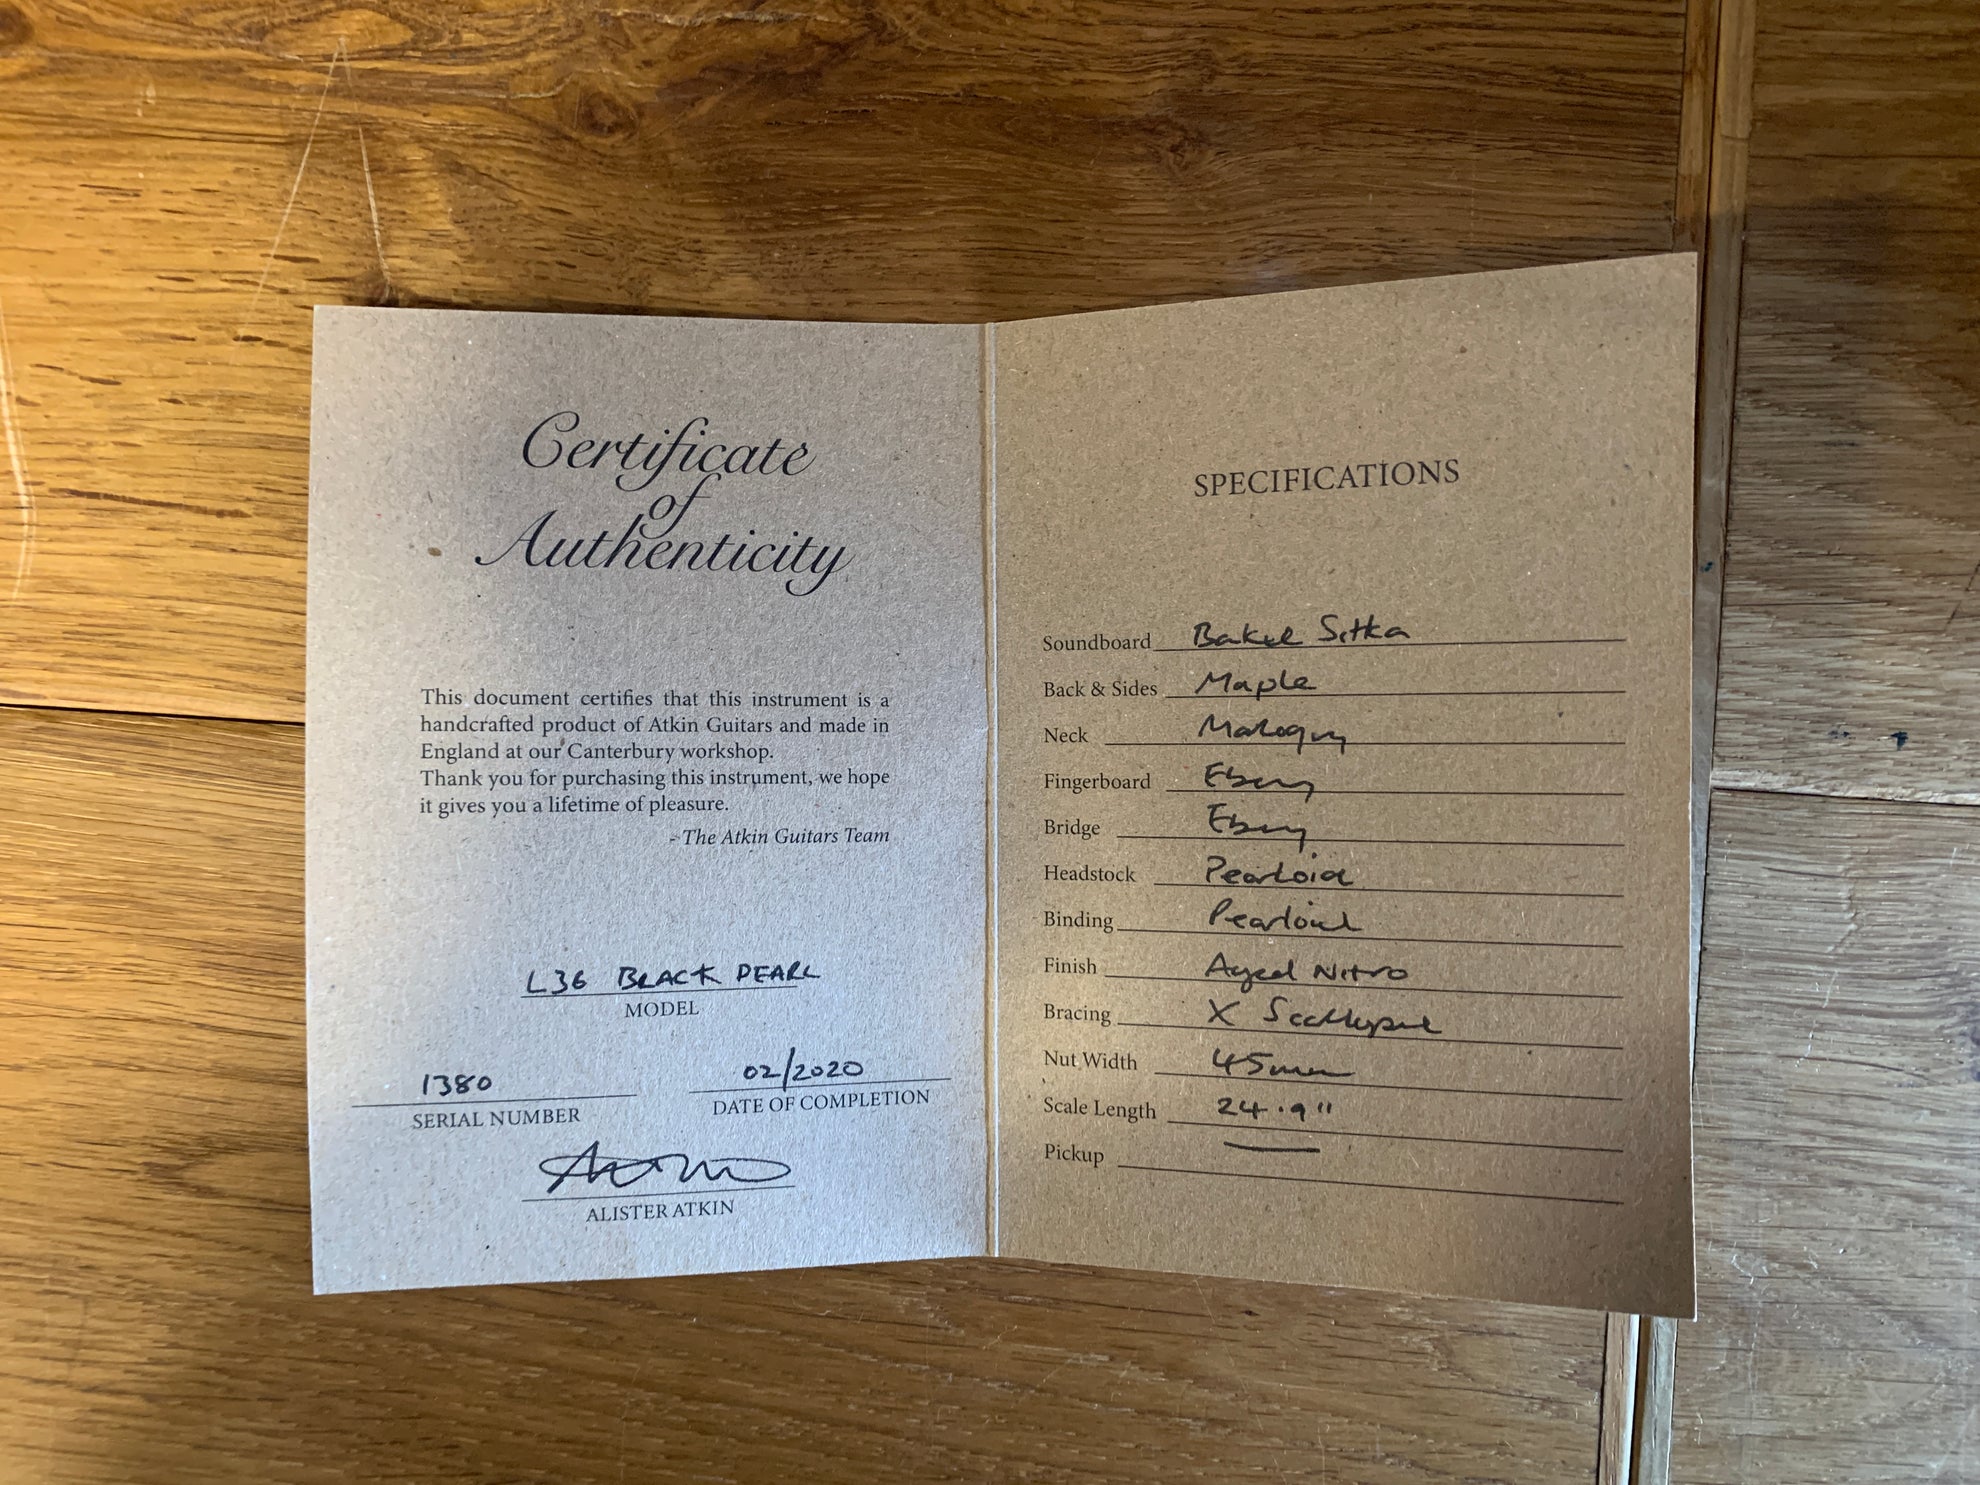 Certificate
of
Authenticity
This document certifies that this instrument is a
handcrafted product of Atkin Guitars and made in
England at our Canterbury workshop.
Thank you for purchasing this instrument, we hope
it gives you a lifetime of pleasure.
- The Atkin Guitars Team
L36 BLACK PEARL
MODEL
1380
SERIAL NUMBER
02/2020
DATE OF COMPLETION
ALISTER ATKIN
SPECIFICATIONS
Soundboard Baked Sitka
Back & Sides Maple
Neck Mahogany
Fingerboard Ebony
Bridge Ebony
Headstock Pearloid
Binding Pearloid
Finish Aged Nitro
Bracing X Scalloped
Nut Width 45mm
Scale Length 24.9"
Pickup —